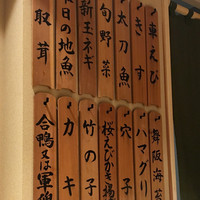 車えび
きす
太刀魚
旬野菜
新玉ネギ
本日の地魚
取茸
舞阪海苔
ハマグリ
穴子
桜えびかき揚
竹の子
カキ
合鴨又は軍鶏